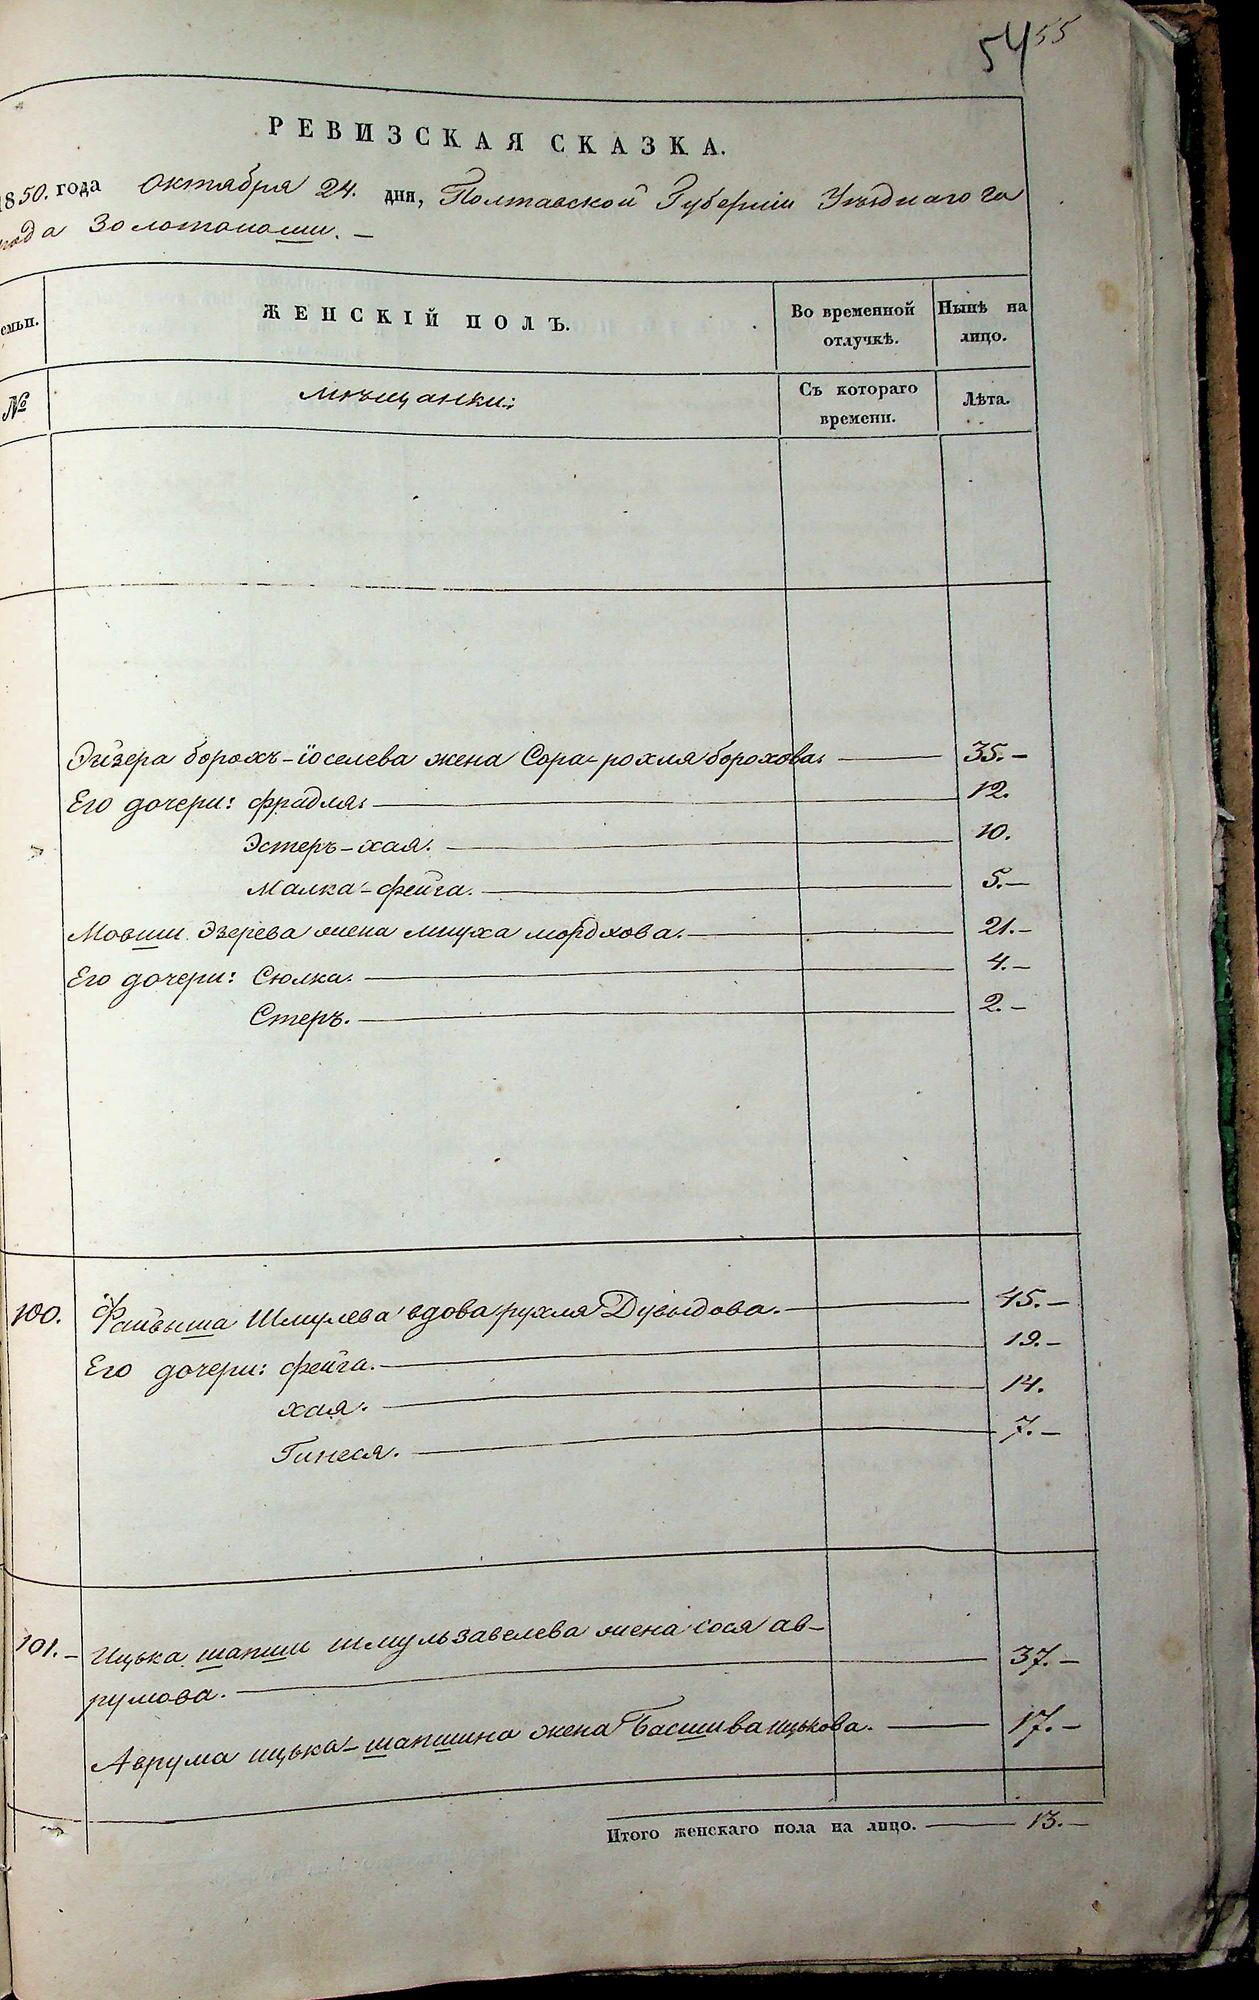 54 55
РЕВИЗСКАЯ СКАЗКА.
1850. года Октября 24. дня, Полтавской Губерніи Уѣзднаго го
рода Золотоноши. —
емьи. ЖЕНСКІЙ ПОЛЪ. Во временной отлучкѣ. Нынѣ на лицо.
№ Мѣщанки: Съ котораго времени. Лѣта.
Эйзера Борохъ-Іоселева жена Сора-рохля Борохова. 35.—
Его дочери: Фрадля. 12.
Эстеръ-хая. 10.
Малка-фейга. 5.—
Мовши Эзерева жена Мнуха Мордхова. 21.—
Его дочери: Сюлка. 4.—
Стеръ. 2.—
100. Файвыша Шмулева вдова рухля Дувыдова. 45.—
Его дочери: Фейга. 19.—
хая. 14.
Гинеся. 7.—
101.— Ицька шапши Шмульзавелева жена Сося Ав-
румова. 37.—
Аврума ицька-шапшина жена Басшива ицькова. 17.—
Итого женскаго пола на лицо. 13.—